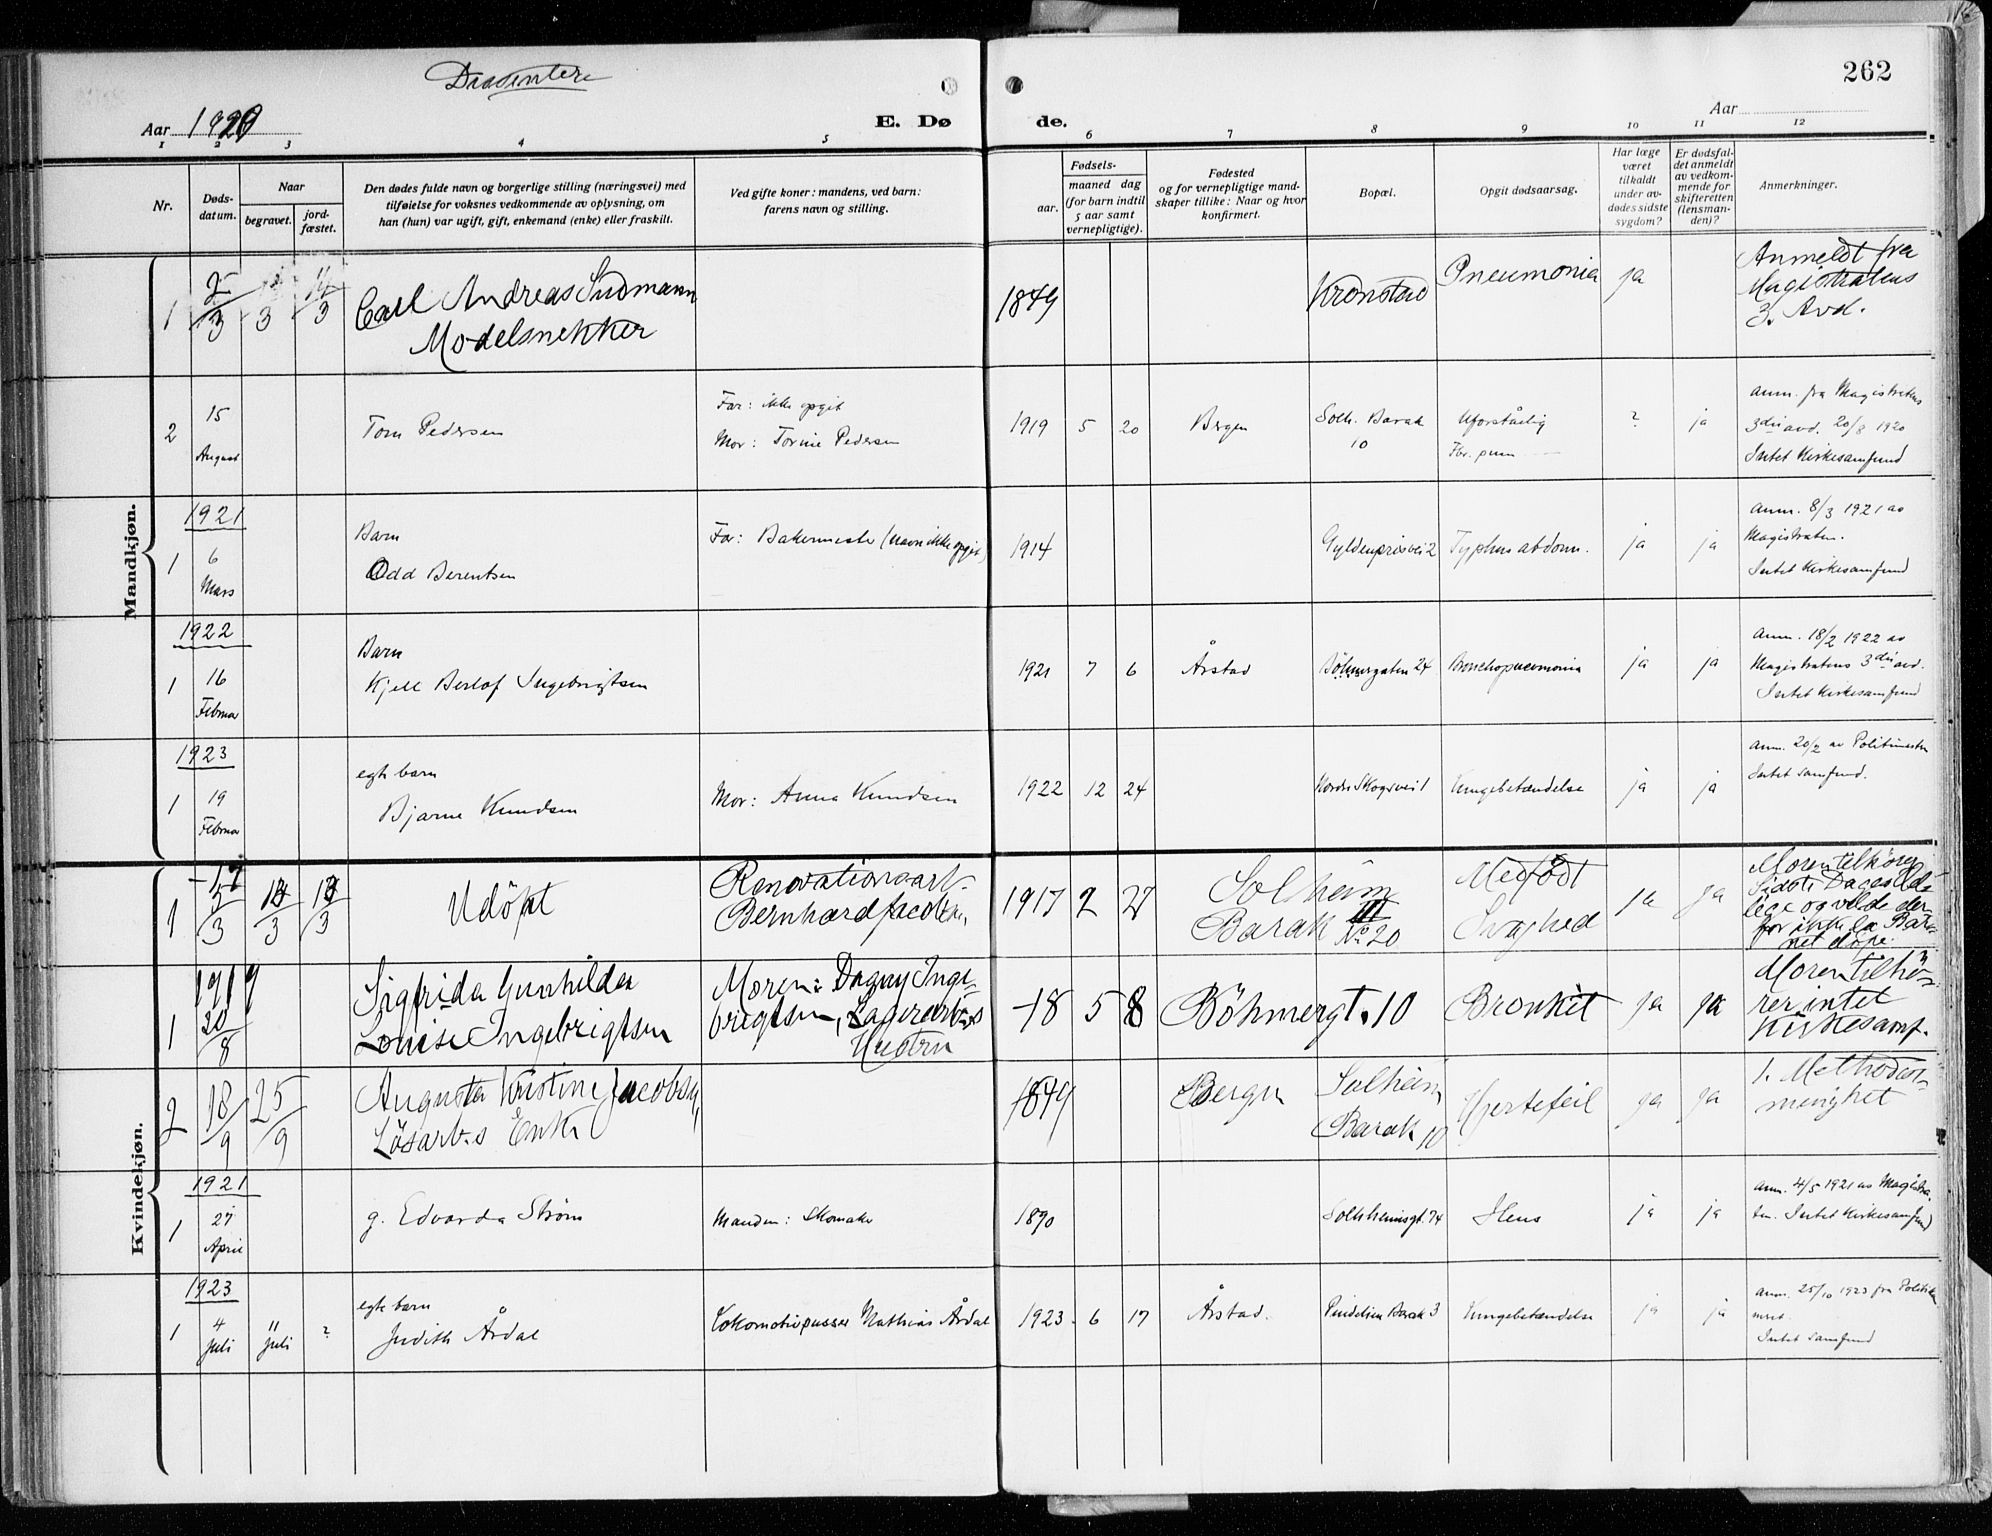 Dissentere
262
Aar 1920
E. Dø
de.
Aar
1 2 3 4 5 6 7 8 9 10 11 12
Nr.
Døds-
datum.
Naar
begravet.
jord-
fæstet.
Den dødes fulde navn og borgerlige stilling (næringsvei) med
tilføielse for voksnes vedkommende av oplysning, om
han (hun) var ugift, gift, enkemand (enke) eller fraskilt.
Ved gifte koner: mandens, ved barn:
farens navn og stilling.
Fødsels-
aar.
maaned dag
(for barn indtil
5 aar samt
vernepligtige).
Fødested
og for vernepligtige mand-
skaper tillike: Naar og hvor
konfirmert.
Bopæl.
Opgit dødsaarsag.
Har læge
været
tilkaldt
under av-
dødes sidste
sygdom?
Er dødsfal-
det anmeldt
av vedkom-
mende for
skifteretten
(lensman-
den)?
Anmerkninger.
Mandkjøn.
1 2/3 3 11/3
Carl Andreas Sudmann
Modelsnekker
1849
Kronstad
Pneumonia
ja
Anmeldt fra
Magistratens
3. Avd.
2
15
August
Tom Pedersen
Far: ikke opgit
Mor: Torine Pedersen
1919 5 20
Bergen
Solh. Barak
10
Uforståelig
? ja
anm. fra Magistratens
3die avd. 20/8 1920
Intet Kirkesamfund
1921
1
6
Mars
Barn
Odd Berentsen
Far: Bakermester (navn ikke opgit)
1914
Gyldenprisvei 2
Typhus abdom.
ja ja
anm. 8/3 1921 av
Magistraten.
Intet Kirkesamfund
1922
1
16
Februar
Barn
Kjell Berlof Ingebrigtsen
1921 7 6
Årstad
Böhmergaten 24
Bronchopneumonia
ja ja
anm. 18/2 1922 av
Magistratens 3die avd.
Intet Kirkesamfund
1923
1
19
Februar
egte barn
Bjarne Knudsen
Mor: Anna Knudsen
1922 12 24
Nordre Skogvei 1
Lungebetændelse
ja ja
anm. 20/2 av Politimester
Intet samfund.
Kvindekjøn.
-17
1 5/3 13/3 13/3
Udöpt
Renovationsarb.
Bernhard Jacobsen,
1917 2 27
Solheim
Barak III
No 20
Medfödt
Svaghed
ja ja
Moren tilhörer
Sidste Dages Hel-
lige og vilde der-
for ikke la Bar-
net döpe.
1919
1 20/8
Sigfrida Gunhilda
Louise Ingebrigtsen
Moren: Dagny Inge-
brigtsen, Lagerarb.s
Hustru
-18 5 8
Böhmergt. 10
Bronkit
ja ja
Moren tilhö-
rer intet
Kirkesamf.
2 18/9 25/9
Augusta Kristine Jacobsen,
Lösarb.s Enke
1849
Bergen
Solheim
Barak 10
Hjertefeil
ja ja
1. Methodist-
menighet
1921
1
27
April
g. Edvarda Strøm
Manden: Skomaker
1890
Solheimsgt. 74
Ileus
ja ja
anm. 4/5 1921 av Magistra-
ten. Intet Kirkesamfund
1923
1
4
Juli
11
Juli
?
egte barn
Judith Årdal
Lokomotivpusser Mathias Årdal
1923 6 17
Årstad.
Barak 3
Lungebetændelse
ja ja
anm. 25/10 1923 fra Politikam-
meret.
Intet samfund